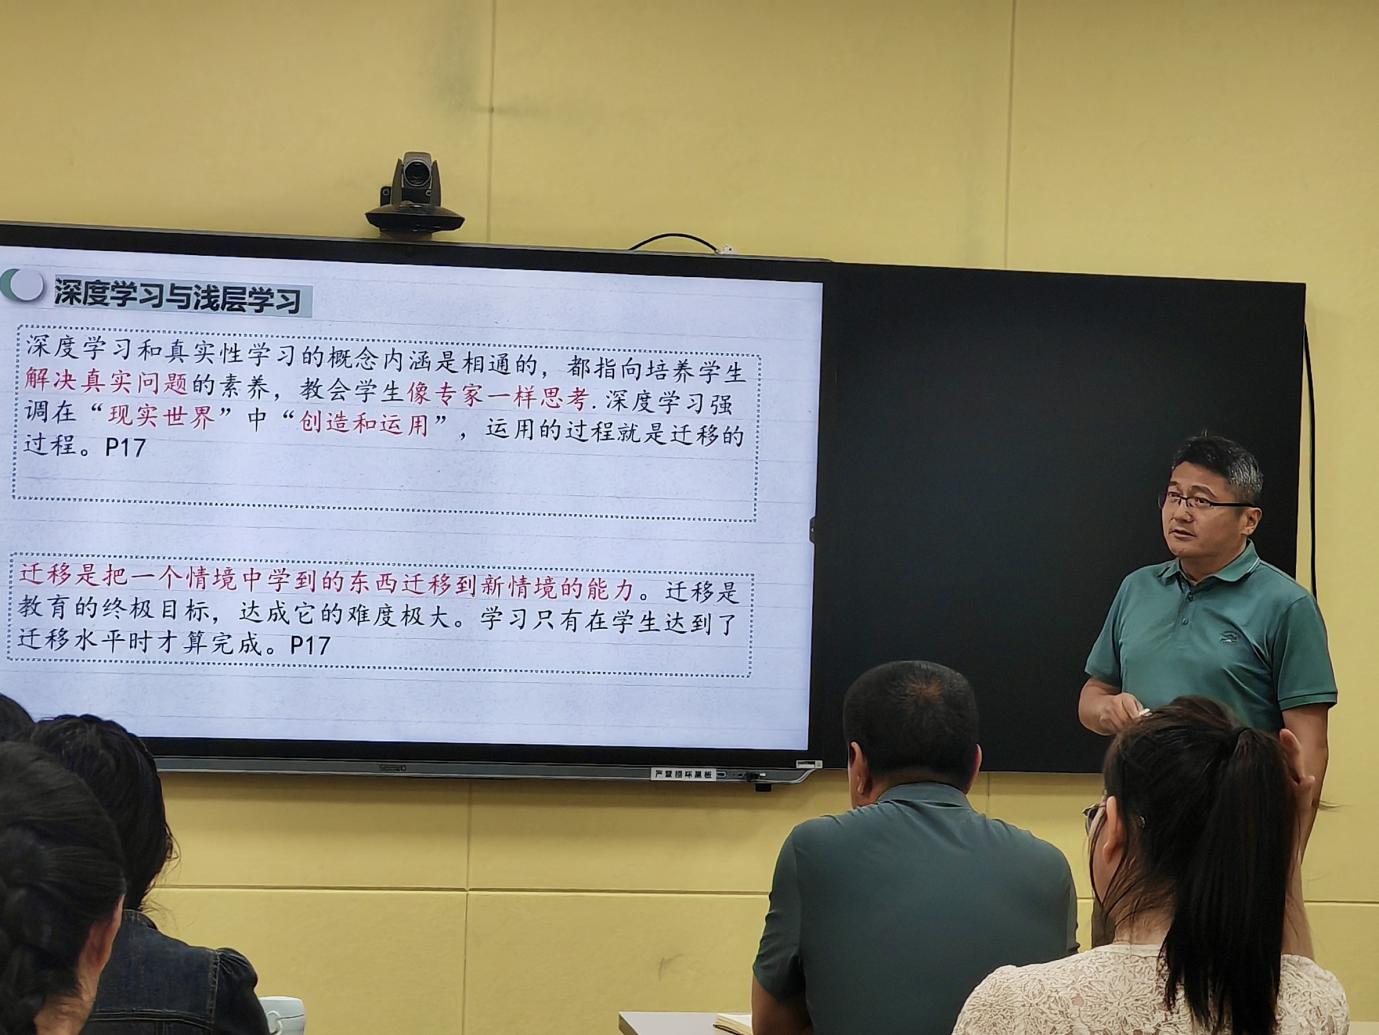 深度学习与浅层学习
深度学习和真实性学习的概念内涵是相通的，都指向培养学生
解决真实问题的素养，教会学生像专家一样思考.深度学习强
调在“现实世界”中“创造和运用”，运用的过程就是迁移的
过程。P17
迁移是把一个情境中学到的东西迁移到新情境的能力。迁移是
教育的终极目标，达成它的难度极大。学习只有在学生达到了
迁移水平时才算完成。P17